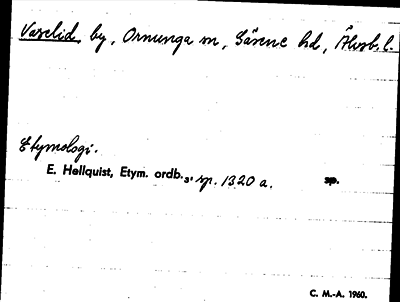 Vaselid, by, Ornunga sn, Gäsene hd, Älvsb. l.
Etymologi.
E. Hellquist, Etym. ordb.3, sp. 1320 a.
C. M.-A. 1960.